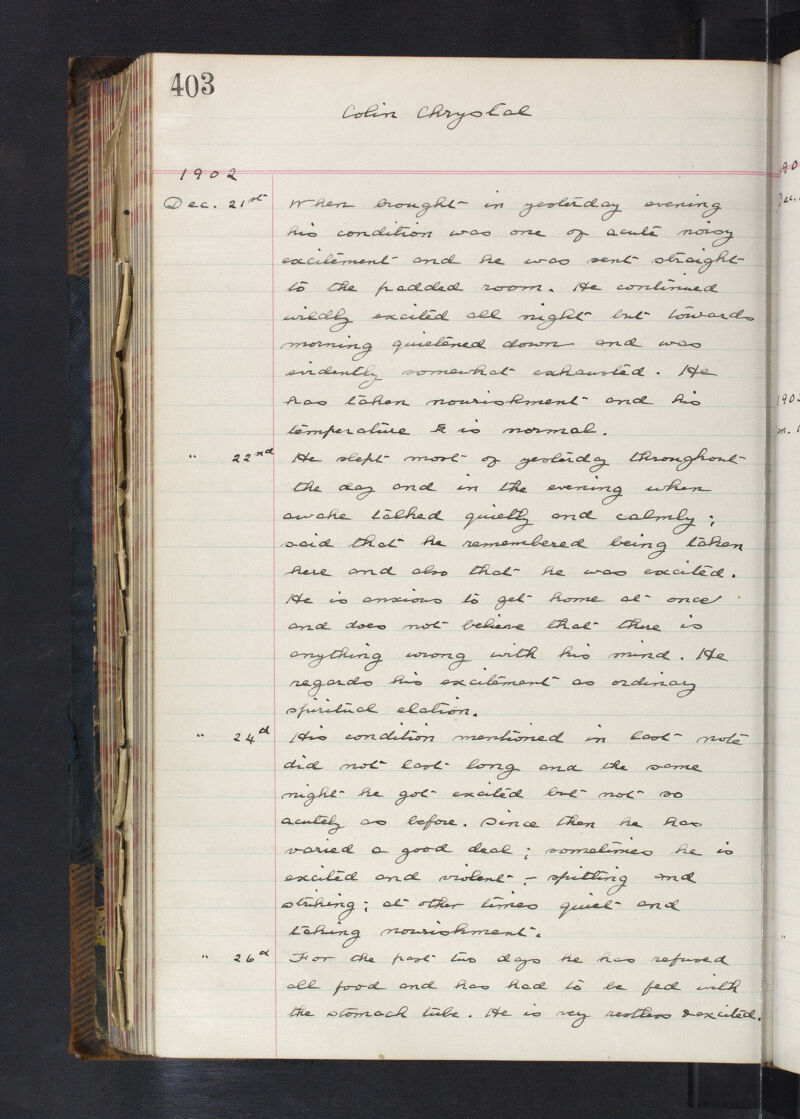 403
Colin Chrystal
1902
Dec. 21st When brought in yesterday evening
his condition was one of acute noisy
excitement and he was sent straight
to the padded room. He continued
wildly excited all night but towards
morning quietened down and was
evidently somewhat exhausted. He
has taken nourishment and his
temperature is normal.
" 22nd He slept most of yesterday throughout
the day and in the evening when
awake talked quietly and calmly;
said that he remembered being taken
here and also that he was excited.
He is anxious to get home at once
and does not believe that there is
anything wrong with his mind. He
regards his excitement as ordinary
spiritual elation.
" 24d His condition mentioned in last note
did not last long and the same
night he got excited but not so
acutely as before. Since then he has
varied a good deal; sometimes he is
excited and violent - spitting and
striking; at other times quiet and
taking nourishment.
" 26d For the past two days he has refused
all food and has had to be fed with
the stomach tube. He is very restless & excited.